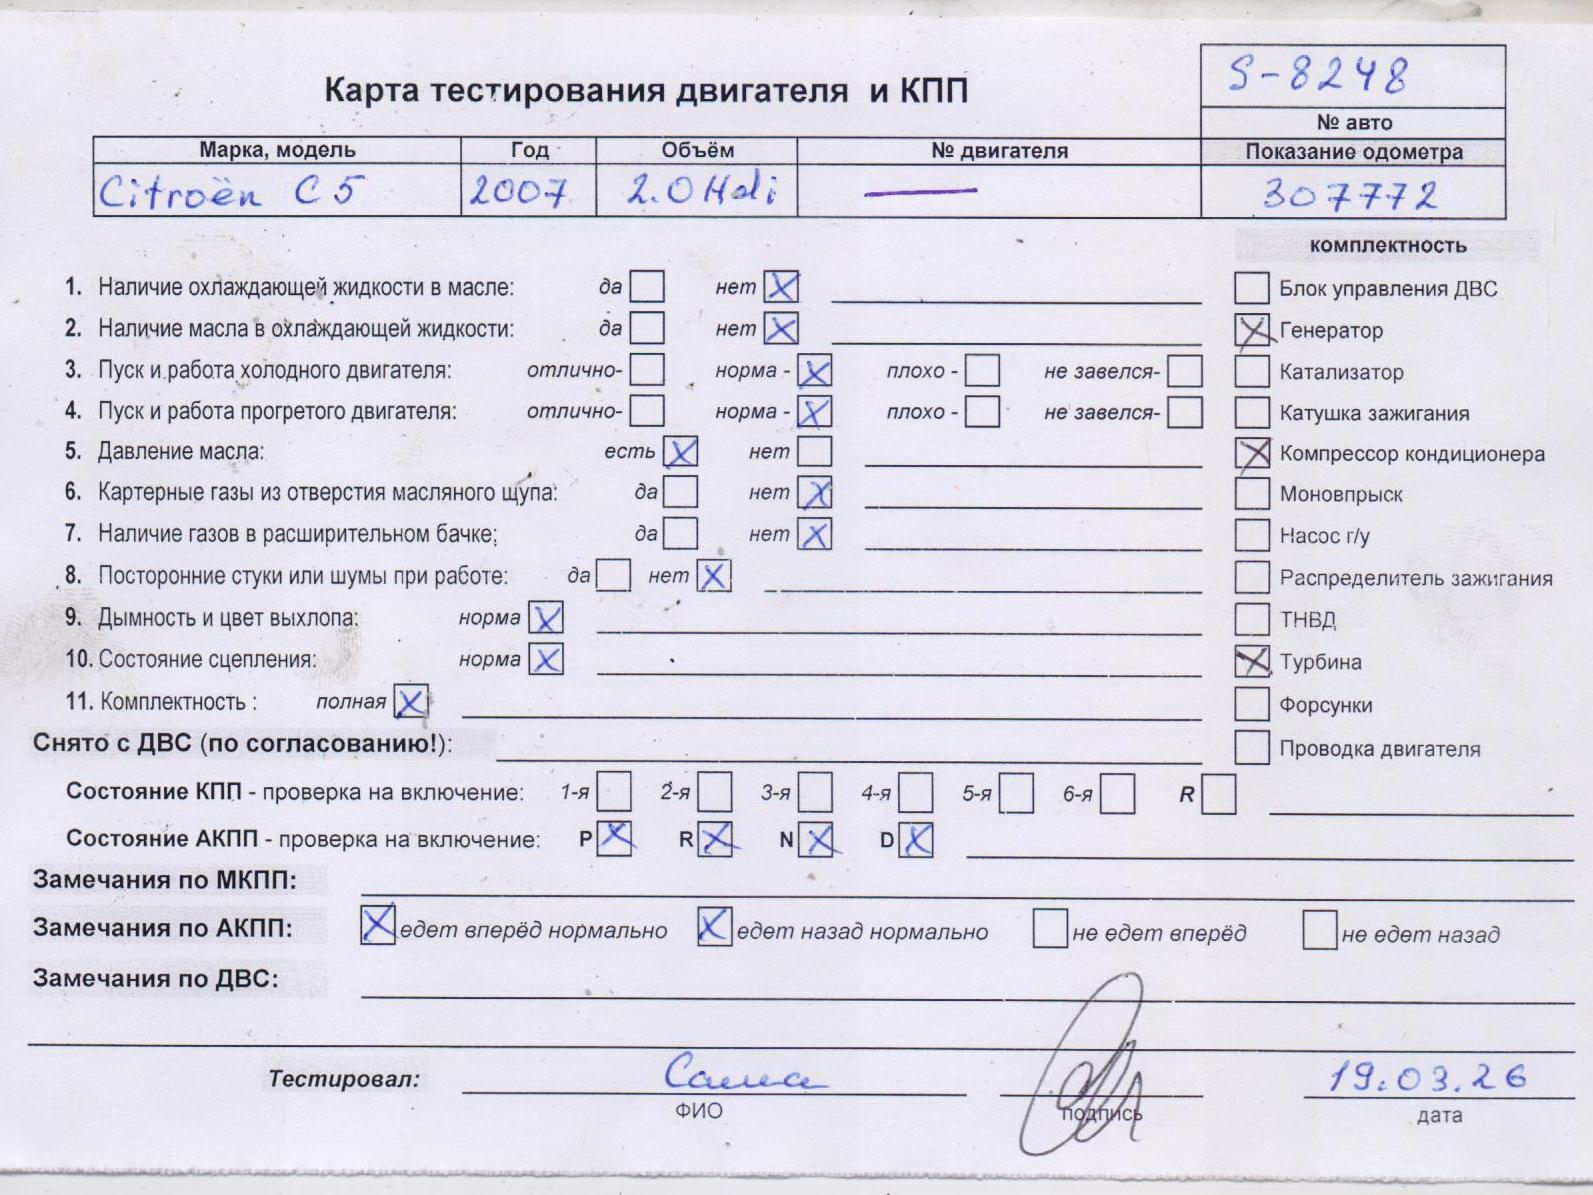 S-8248
Карта тестирования двигателя и КПП
№ авто
Марка, модель Год Объём № двигателя Показание одометра
Citroën C5 2007 2.0 Hdi — 307772
комплектность
1. Наличие охлаждающей жидкости в масле: да нет X Блок управления ДВС
2. Наличие масла в охлаждающей жидкости: да нет X X Генератор
3. Пуск и работа холодного двигателя: отлично- норма - X плохо - не завелся- Катализатор
4. Пуск и работа прогретого двигателя: отлично- норма - X плохо - не завелся- Катушка зажигания
5. Давление масла: есть X нет X Компрессор кондиционера
6. Картерные газы из отверстия масляного щупа: да нет X Моновпрыск
7. Наличие газов в расширительном бачке; да нет X Насос г/у
8. Посторонние стуки или шумы при работе: да нет X Распределитель зажигания
9. Дымность и цвет выхлопа: норма X ТНВД
10. Состояние сцепления: норма X X Турбина
11. Комплектность : полная X Форсунки
Снято с ДВС (по согласованию!): Проводка двигателя
Состояние КПП - проверка на включение: 1-я 2-я 3-я 4-я 5-я 6-я R
Состояние АКПП - проверка на включение: P X R X N X D X
Замечания по МКПП:
Замечания по АКПП: X едет вперёд нормально X едет назад нормально не едет вперёд не едет назад
Замечания по ДВС:
Тестировал: Саша 19.03.26
ФИО подпись дата